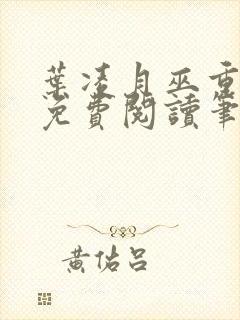 葉凌月巫重
免費閱讀筆
黃佑呂